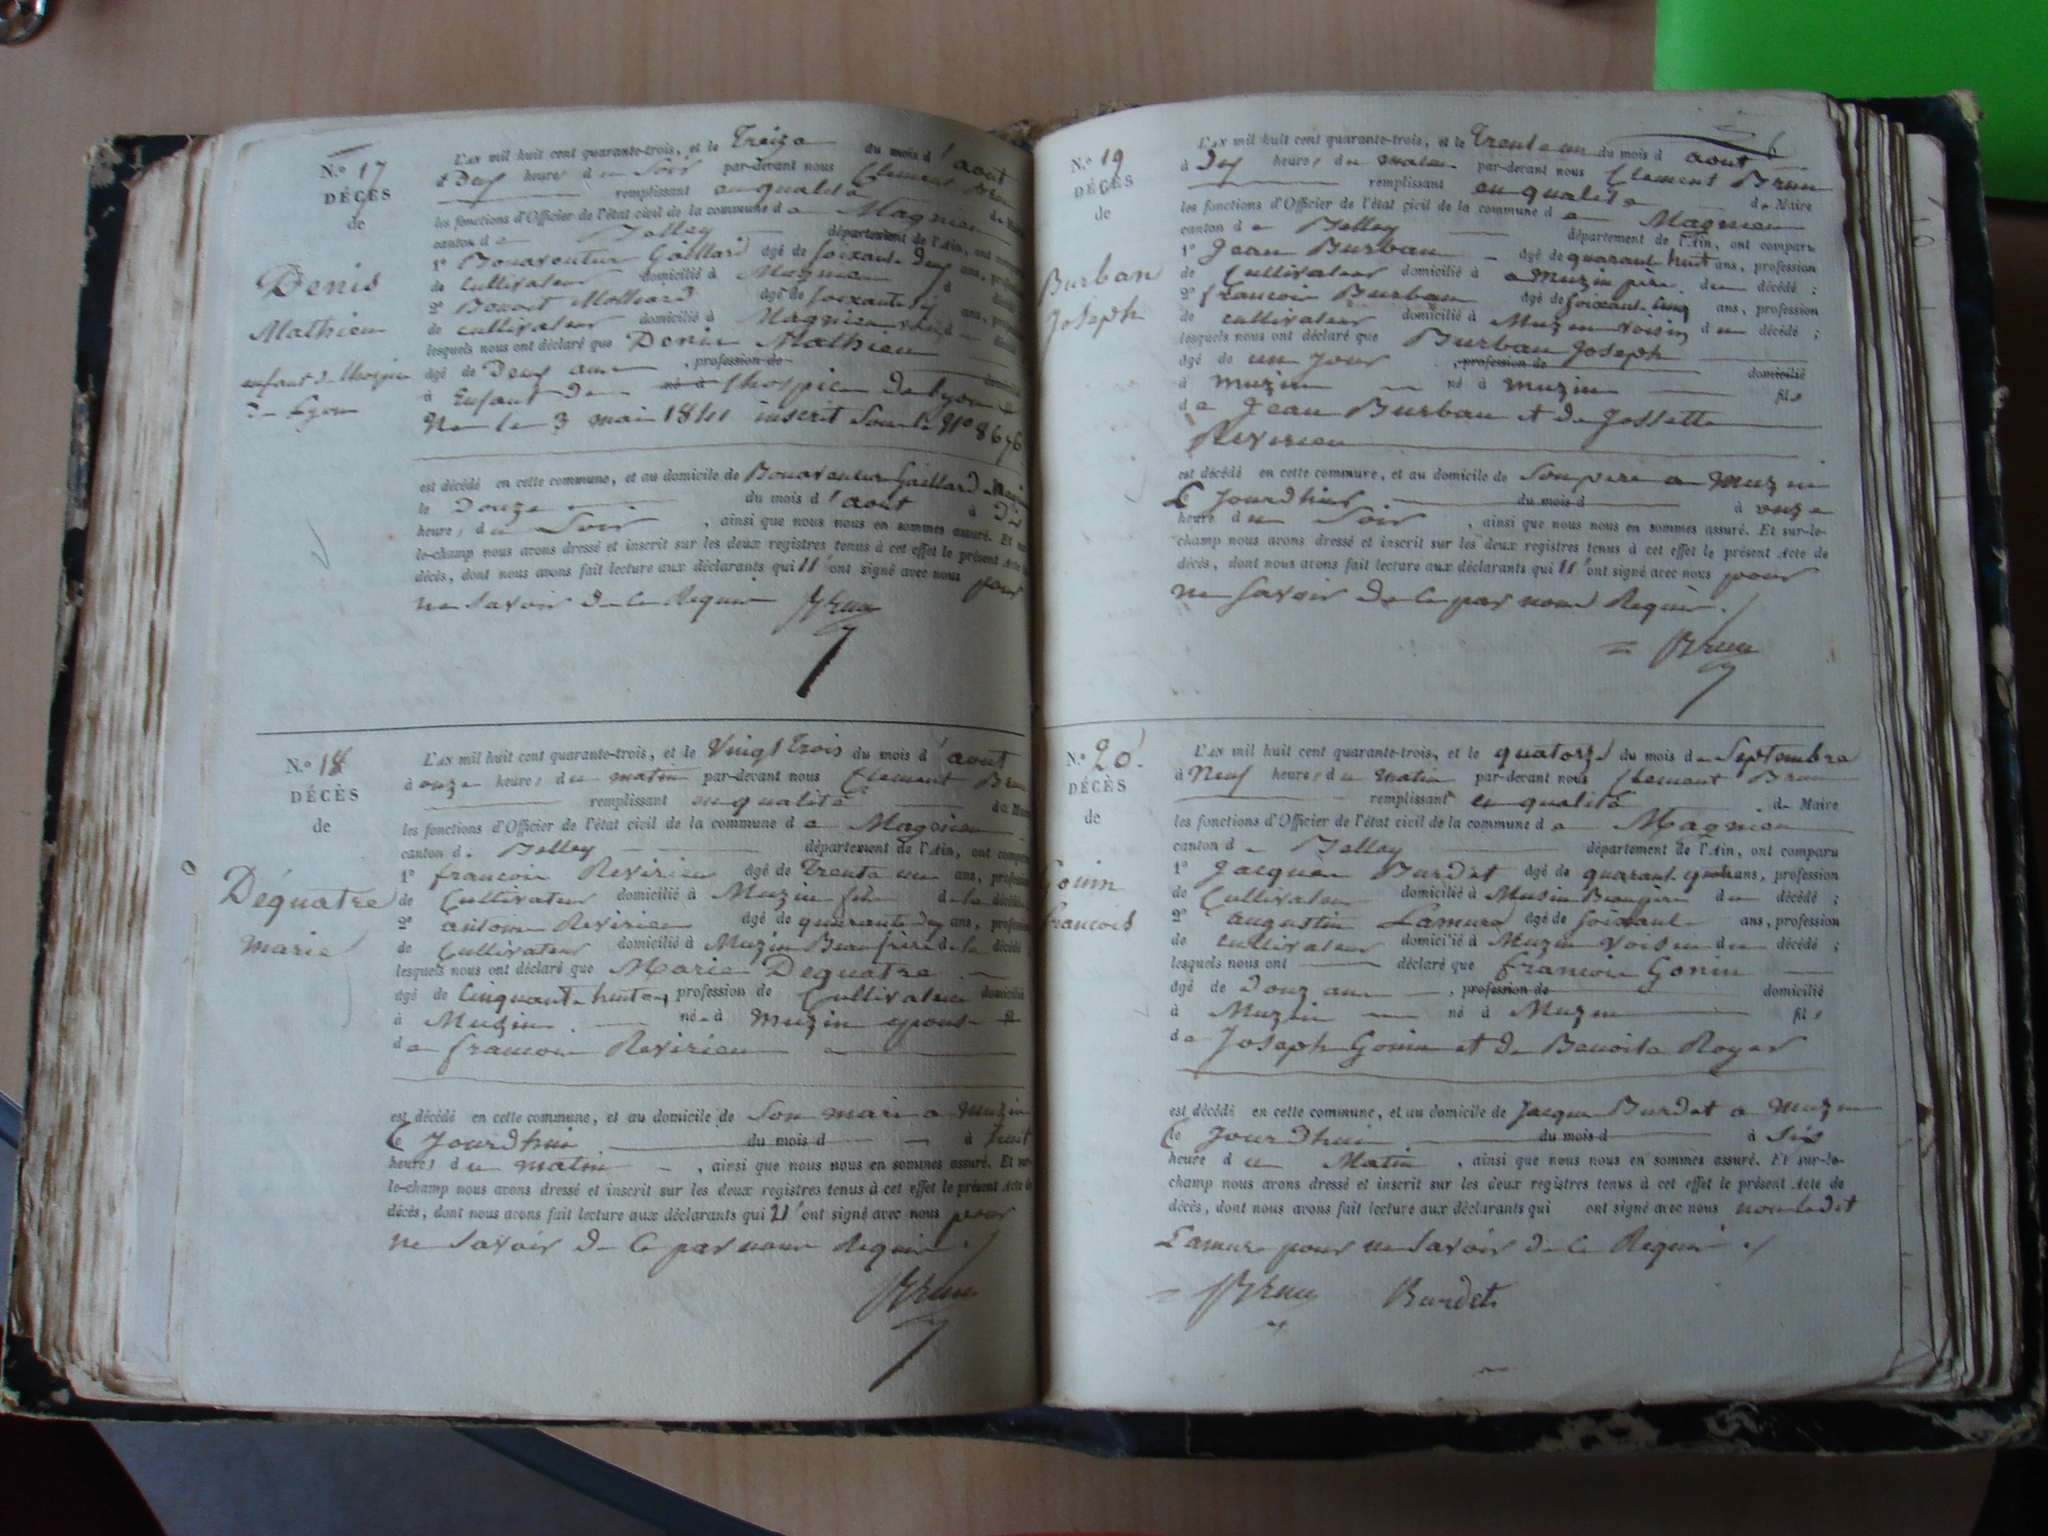 N.º 17
DÉCÈS
de
Denis
Mathieu
enfant de l'hospice
de Lyon
L'AN mil huit cent quarante-trois, et le Treize du mois d'aout
à Deux heures du Soir par-devant nous Clement Brun
remplissant en qualité de Maire
les fonctions d'Officier de l'état civil de la commune de Magnieu
canton de Belley département de l'Ain, ont comparu
1º Bonaventur Gaillard âgé de soixante Deux ans, profession
de Cultivateur domicilié à Magnieu
2º Benoit Molliard âgé de soixante ans, profession
de cultivateur domicilié à Magnieu
lesquels nous ont déclaré que Denis Mathieu
âgé de Deux ans , profession de domicilié
à Enfant de né à l'hospice de Lyon
Ne le 3 mai 1841 inscrit Sous le Nº 8676
est décédé en cette commune, et au domicile de Bonaventur Gaillard
le Douze du mois d'aout à Dix
heures du Soir , ainsi que nous nous en sommes assuré. Et sur-
le-champ nous avons dressé et inscrit sur les deux registres tenus à cet effet le présent Acte de
décès, dont nous avons fait lecture aux déclarants qui n'ont signé avec nous pour
ne Savoir de ce Requis Brun
N.º 18
DÉCÈS
de
Déquatre
marie
L'AN mil huit cent quarante-trois, et le Vingt Trois du mois d'aout
à onze heures du matin par-devant nous Clement Brun
remplissant en qualité de Maire
les fonctions d'Officier de l'état civil de la commune de Magnieu
canton de Belley département de l'Ain, ont comparu
1º francois Revirieu âgé de Trente un ans, profession
de Cultivateur domicilié à Muzin fils de la décédée
2º antoine Revirieu âgé de quarante deux ans, profession
de Cultivateur domicilié à Muzin Beaufrere de la décédée
lesquels nous ont déclaré que Marie Dequatre
âgé de Cinquante huit ans, profession de Cultivateur domicilié
à Muzin né à muzin epouse fil
de francois Revirieu
est décédé en cette commune, et au domicile de Son mari a Muzin
Ce Jourdhui du mois d à huit
heures du matin , ainsi que nous nous en sommes assuré. Et sur-
le-champ nous avons dressé et inscrit sur les deux registres tenus à cet effet le présent Acte de
décès, dont nous avons fait lecture aux déclarants qui n'ont signé avec nous pour
ne Savoir de ce par nous Requis.
Brun
N.º 19
DÉCÈS
de
Burban
Joseph
L'AN mil huit cent quarante-trois, et le Trente un du mois d aout
à Dix heures du matin par-devant nous Clement Brun
remplissant en qualité de Maire
les fonctions d'Officier de l'état civil de la commune de Magnieu
canton de Belley département de l'Ain, ont comparu
1º Jean Burban âgé de quarante huit ans, profession
de Cultivateur domicilié à a Muzin père du décédé ;
2º francois Burban âgé de soixante Cinq ans, profession
de cultivateur domicilié à Muzin voisin du décédé ;
lesquels nous ont déclaré que Burban Joseph
âgé de un Jour , profession de domicilié
à muzin né à muzin fils
de Jean Burban et de Jossette
Revirieu
est décédé en cette commune, et au domicile de Son pere a Muzin
Ce Jourdhui du mois d à onze
heure du Soir , ainsi que nous nous en sommes assuré. Et sur-le-
champ nous avons dressé et inscrit sur les deux registres tenus à cet effet le présent Acte de
décès, dont nous avons fait lecture aux déclarants qui n'ont signé avec nous pour
ne Savoir de ce par nous Requis.
Brun
N.º 20
DÉCÈS
de
Gonin
francois
L'AN mil huit cent quarante-trois, et le quatorze du mois de Septembre
à Neuf heures du matin par-devant nous Clement Brun
remplissant en qualité de Maire
les fonctions d'Officier de l'état civil de la commune de Magnieu
canton de Belley département de l'Ain, ont comparu
1º Jacques Burdet âgé de quarante quatre ans, profession
de Cultivateur domicilié à Musin Beaupère du décédé ;
2º augustin Lamure âgé de Soixante ans, profession
de cultivateur domicilié à Muzin voisin du décédé ;
lesquels nous ont déclaré que francois Gonin
âgé de Douz ans , profession de domicilié
à Muzin né à Muzin fils
de Joseph Gonin et de Benoite Royer
est décédé en cette commune, et au domicile de Jacques Burdet a Muzin
Ce le Jourdhui du mois d à Six
heure du Matin , ainsi que nous nous en sommes assuré. Et sur-le-
champ nous avons dressé et inscrit sur les deux registres tenus à cet effet le présent Acte de
décès, dont nous avons fait lecture aux déclarants qui ont signé avec nous non ledit
Lamure pour ne Savoir de ce Requis
Brun Burdet